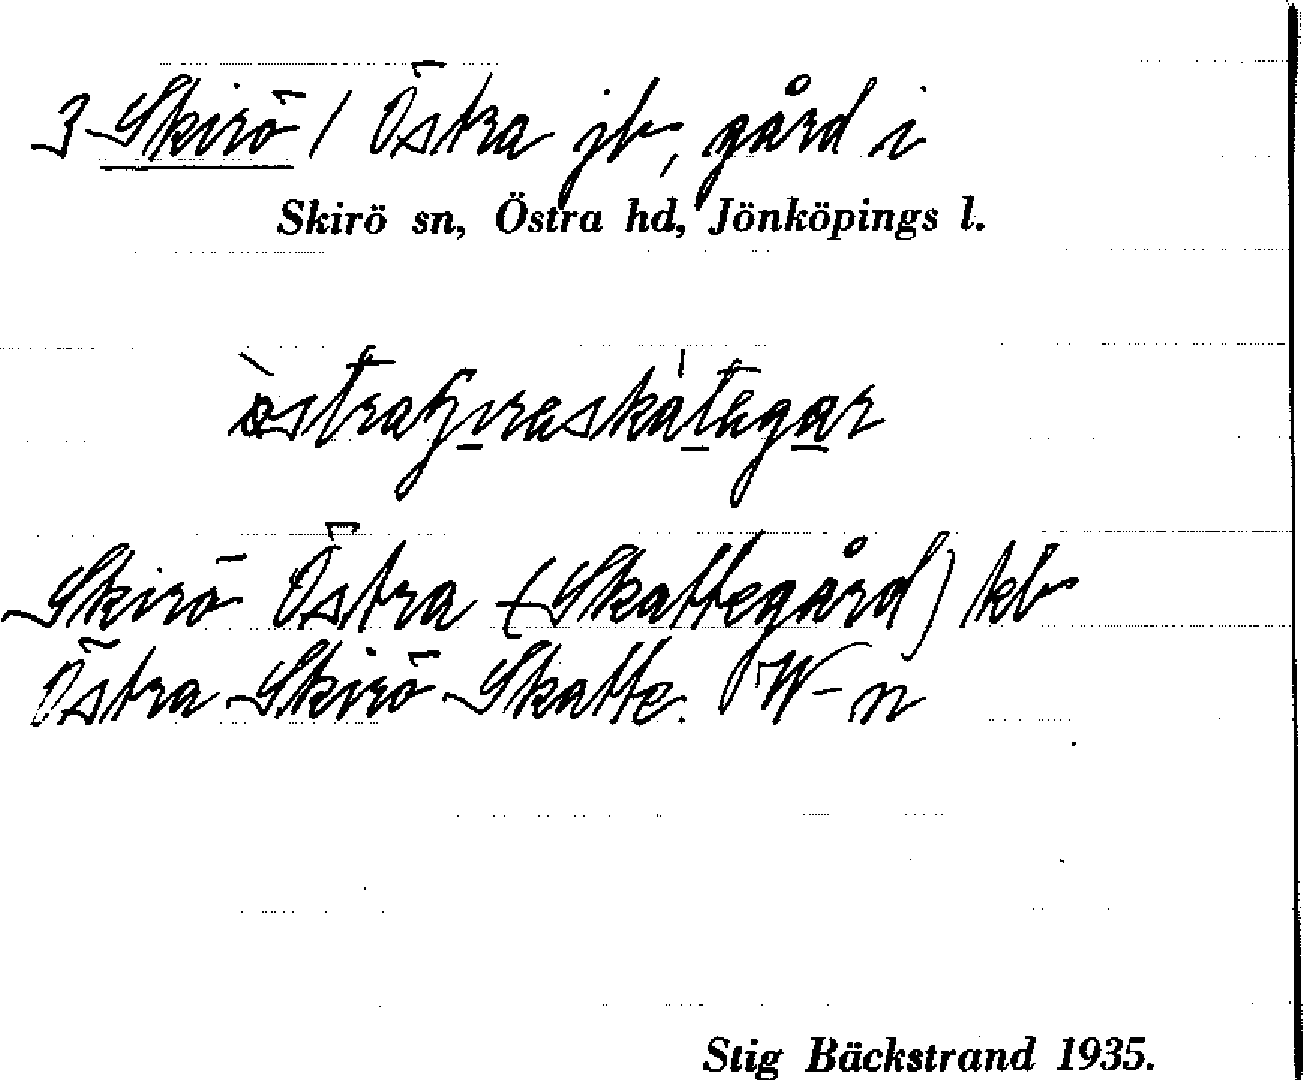 3 Skirö / Östra jb, gård i
Skirö sn, Östra hd, Jönköpings l.
Skirö Östra (Skattegård) kb
Östra Skirö Skatte. W-n
Stig Bäckstrand 1935.